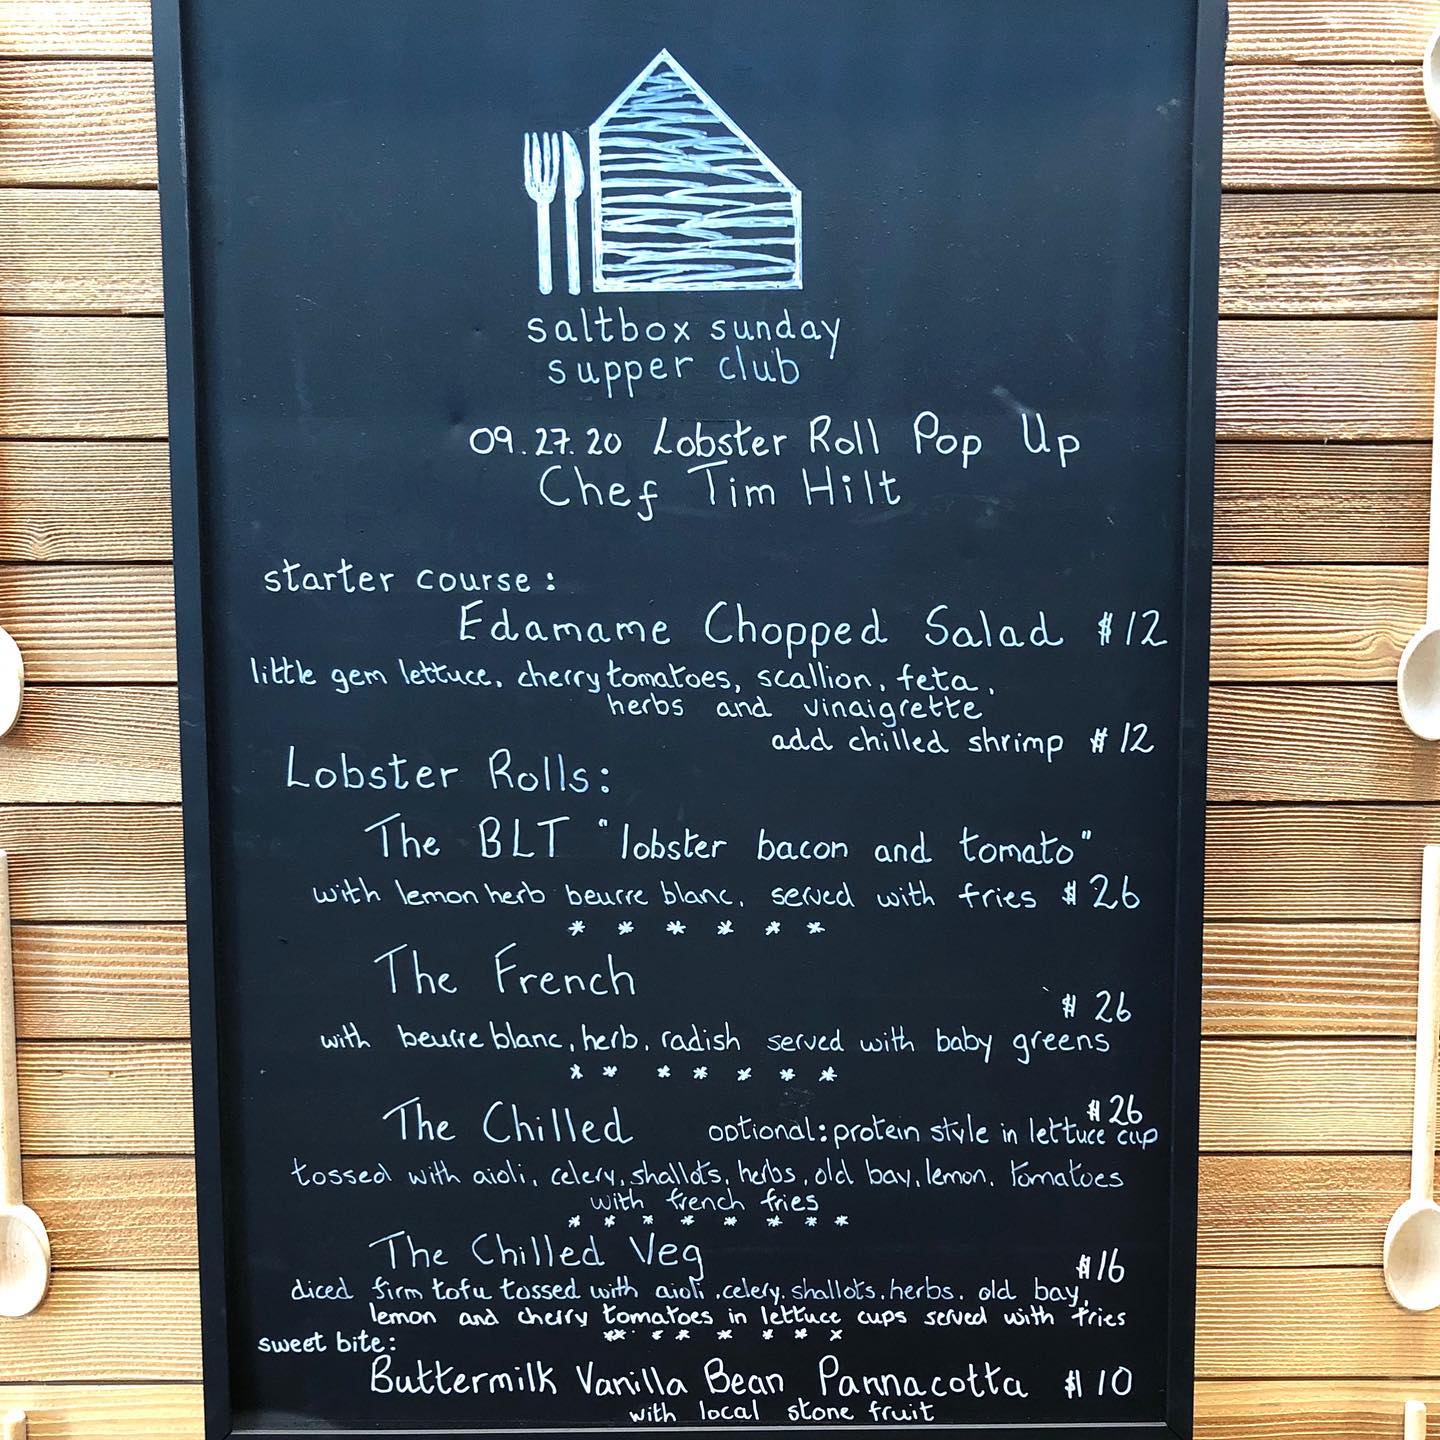 saltbox sunday
supper club
09.27.20 Lobster Roll Pop Up
Chef Tim Hilt
starter course:
Edamame Chopped Salad $12
little gem lettuce, cherry tomatoes, scallion, feta,
herbs and vinaigrette
add chilled shrimp $12
Lobster Rolls:
The BLT "lobster bacon and tomato"
with lemon herb beurre blanc, served with fries $26
* * * * * *
The French
$26
with beurre blanc, herb, radish served with baby greens
* * * * * * *
The Chilled $26
optional: protein style in lettuce cup
tossed with aioli, celery, shallots, herbs, old bay, lemon, tomatoes
with french fries
* * * * * * * *
The Chilled Veg $16
diced firm tofu tossed with aioli, celery, shallots, herbs, old bay,
lemon and cherry tomatoes in lettuce cups served with fries
sweet bite: ** * * * * * *
Buttermilk Vanilla Bean Pannacotta $10
with local stone fruit